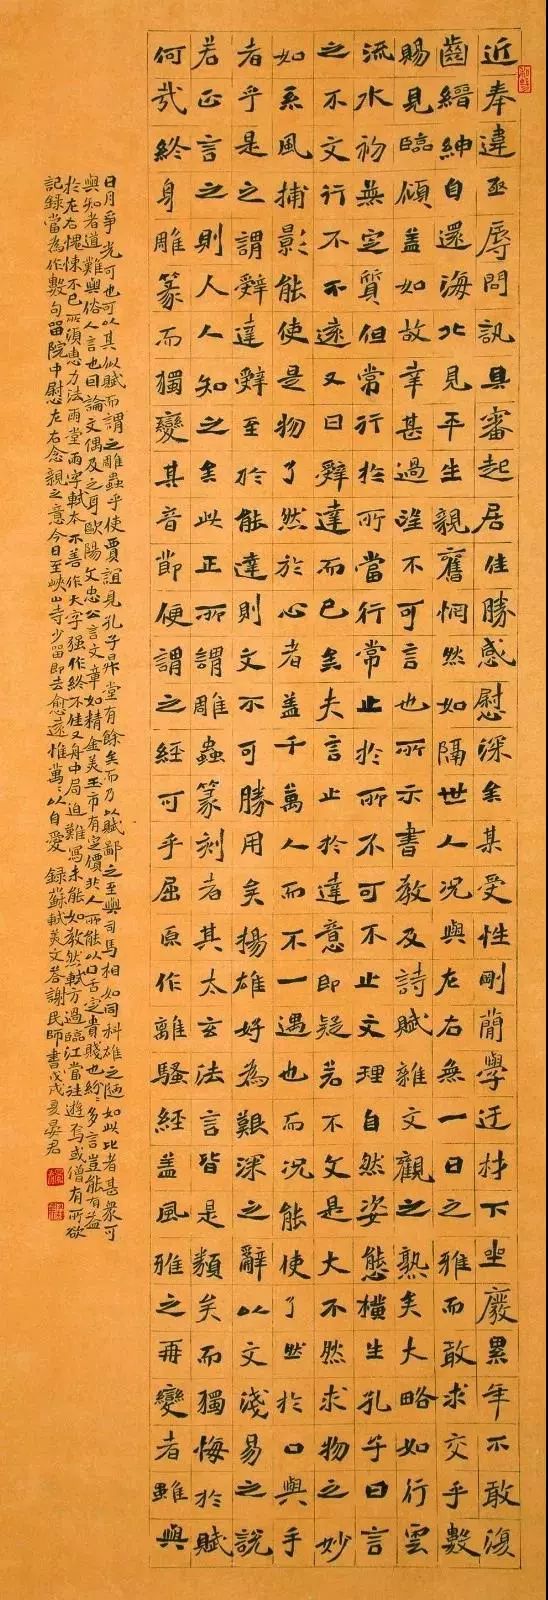 近奉違亟辱問訊具審起居佳勝感慰深矣某受性剛簡學迂材下坐廢累年不敢復
齒縉紳自還海北見平生親舊惘然如隔世人況與左右無一日之雅而敢求交乎數
賜見臨傾蓋如故幸甚過望不可言也所示書教及詩賦雜文觀之熟矣大略如行雲
流水初無定質但常行於所當行常止於所不可不止文理自然姿態橫生孔子曰言
之不文行不不遠又曰辭達而已矣夫言止於達意即疑若不文是大不然求物之妙
如系風捕影能使是物了然於心者蓋千萬人而不一遇也而況能使了然於口與手
者乎是之謂辭達辭至於能達則文不可勝用矣揚雄好為艱深之辭以文淺易之說
若正言之則人人知之矣此正所謂雕蟲篆刻者其太玄法言皆是類矣而獨悔於賦
何哉終身雕篆而獨變其音節便謂之經可乎屈原作離騷經蓋風雅之再變者雖與
日月爭光可也可以其似賦而謂之雕蟲乎使賈誼見孔子昇堂有餘矣而乃以賦鄙之至與司馬相如同科雄之陋如此比者甚衆可
與知者道難與俗人言也因論文偶及之耳歐陽文忠公言文章如精金美玉市有定價非人所能以口舌定貴賤也紛〻多言豈能有益
於左右愧悚不已所須惠力法雨堂兩字軾本不善作大字強作終不佳又舟中局迫難寫未能如教然軾方過臨江當往遊焉或僧有所欲
記錄當為作數句留院中慰左右念親之意今日至峽山寺少留即去愈遠惟萬〻以自愛 錄蘇軾美文答謝民師書戊戌夏晏君